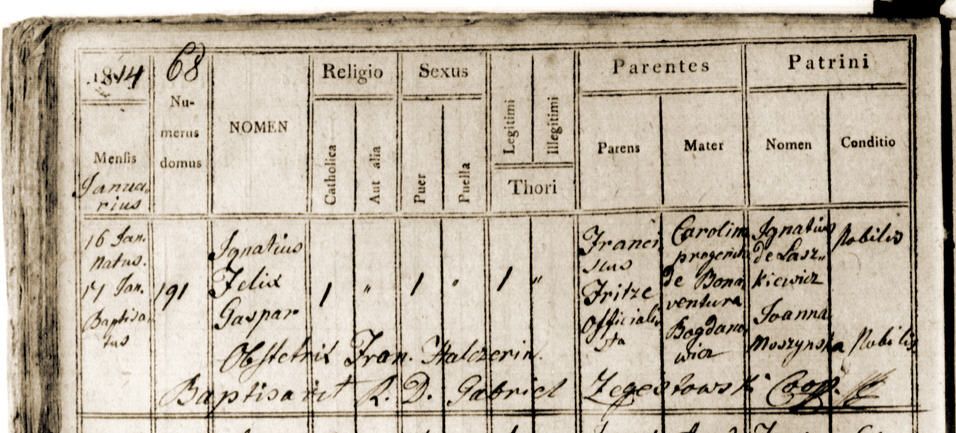 1814 68 Religio Sexus Legitimi Illegitimi Parentes Patrini
Numerus domus NOMEN
Mensis Catholica Aut alia Puer Puella Thori Parens Mater Nomen Conditio
Januarius
16 Jan. natus. 17 Jan. Baptisatus
191
Ignatius
Felix
Gaspar
1 " 1 " 1 "
Franciscus
Fritze
Officialista
Carolina
progenita
de Bona
ventura
Bogdano
wicz
Ignatius
de Lasz„
kiewicz
Nobilis
Joanna
Moszynska Nobilis
Obstetrix Fran. Halczerin.
Baptisavit R. D. Gabriel Zegestowski Coop.